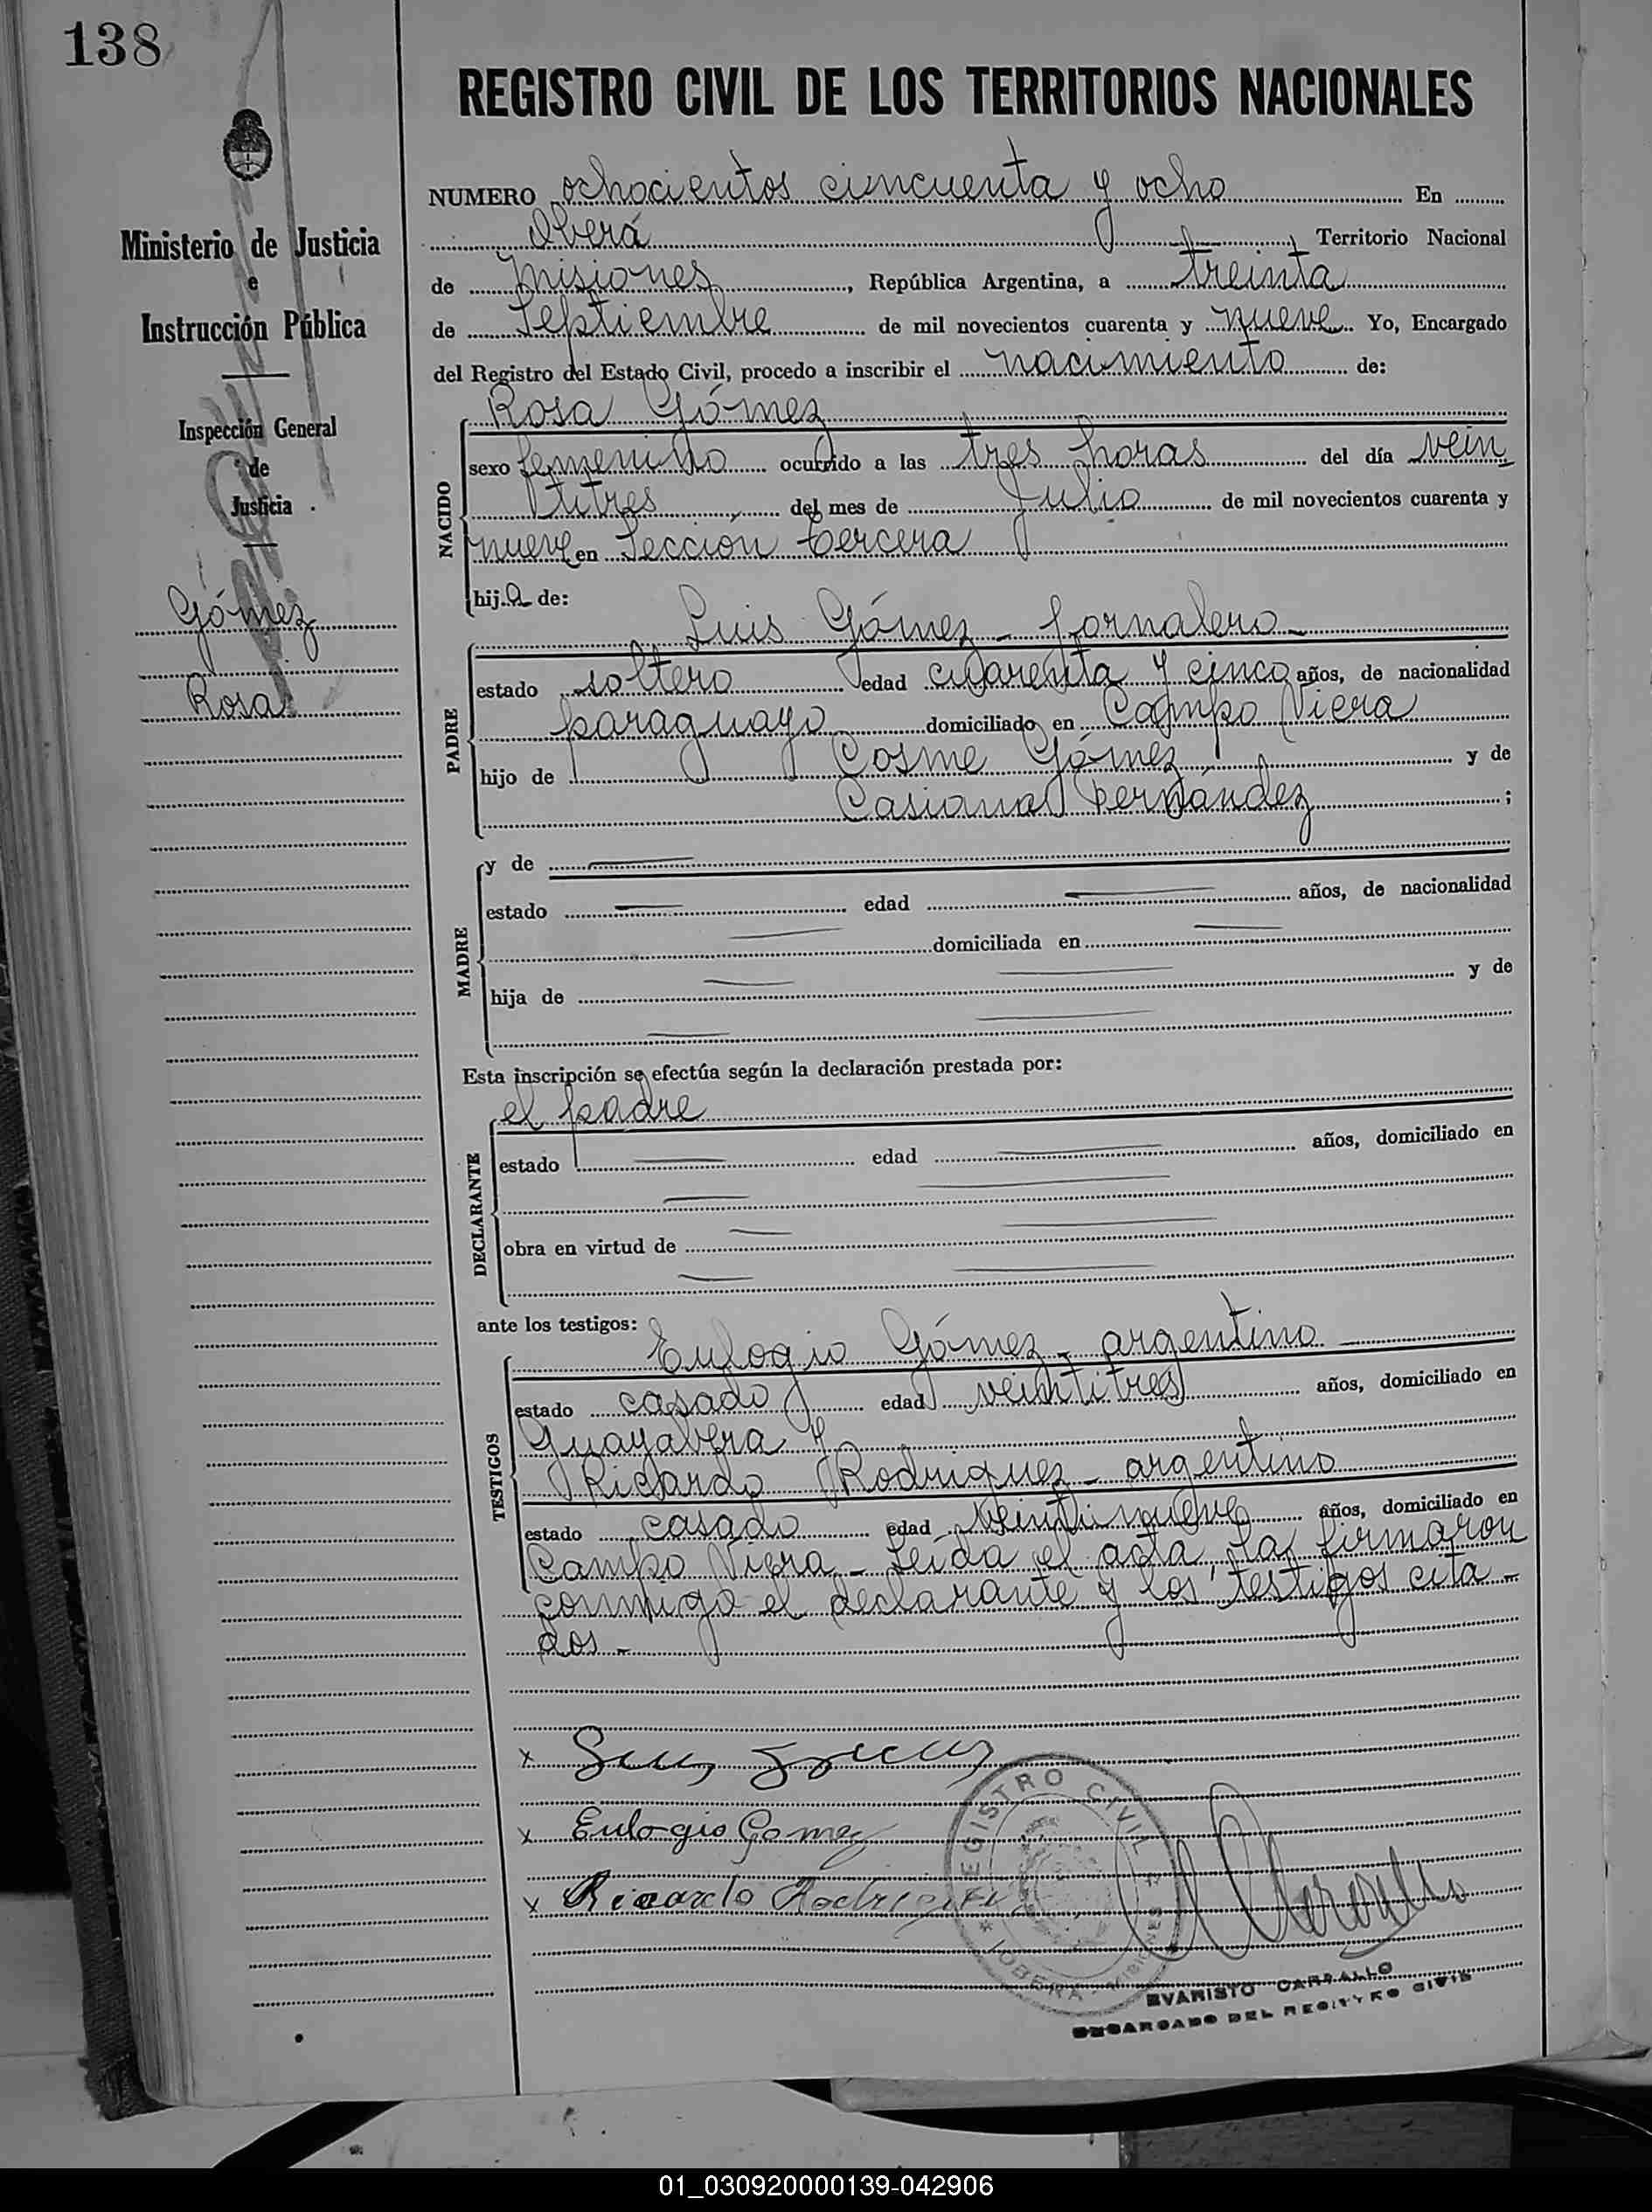 138
REGISTRO CIVIL DE LOS TERRITORIOS NACIONALES
Ministerio de Justicia
e
Instrucción Pública
Inspección General
de
Justicia
Gómez
Rosa
NUMERO ochocientos cincuenta y ocho En
Oberá, Territorio Nacional
de Misiones, República Argentina, a treinta
de Septiembre de mil novecientos cuarenta y nueve Yo, Encargado
del Registro del Estado Civil, procedo a inscribir el nacimiento de:
NACIDO
Rosa Gómez
sexo femenino ocurrido a las tres horas del día vein
titres del mes de Julio de mil novecientos cuarenta y
nueve en Sección tercera
hija de:
PADRE
Luis Gómez - Jornalero -
estado soltero edad cuarenta y cinco años, de nacionalidad
paraguayo domiciliado en Campo Viera
hijo de Cosme Gómez y de
Casiana Fernández;
MADRE
y de
estado edad años, de nacionalidad
domiciliada en
hija de y de
Esta inscripción se efectúa según la declaración prestada por:
DECLARANTE
el padre
estado edad años, domiciliado en
obra en virtud de
ante los testigos:
TESTIGOS
Eulogio Gómez - argentino
estado casado edad veintitres años, domiciliado en
Guayabera y
Ricardo Rodriguez - argentino
estado casado edad veintinueve años, domiciliado en
Campo Viera - Leída el acta la firmaron
conmigo el declarante y los testigos cita -
dos -
x
x Eulogio Gomez
x Ricardo Rodriguez
REGISTRO CIVIL
* OBERA - MISIONES *
EVARISTO CARBALLO
ENCARGADO DEL REGISTRO CIVIL
01_030920000139-042906